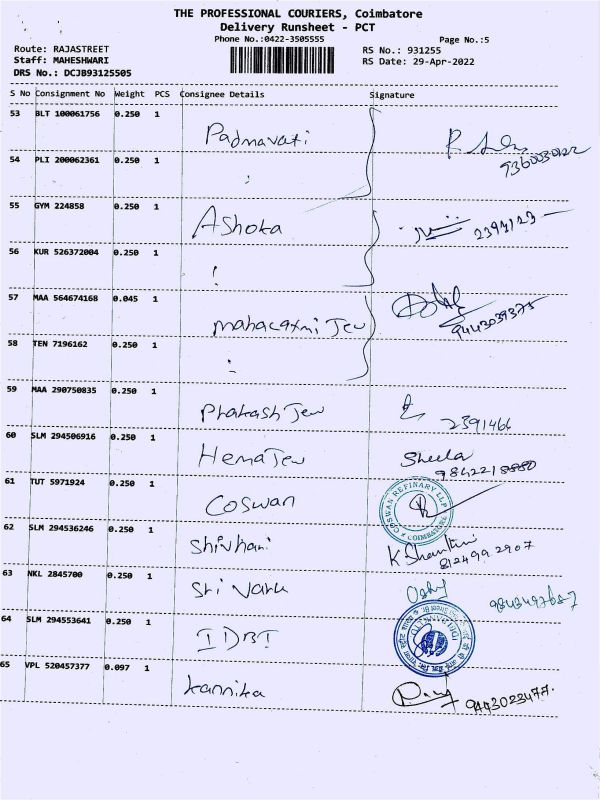 THE PROFESSIONAL COURIERS, Coimbatore
Delivery Runsheet - PCT
Phone No.:0422-3505555 Page No.:5
Route: RAJASTREET RS No.: 931255
Staff: MAHESHWARI RS Date: 29-Apr-2022
DRS No.: DCJB93125505
S No Consignment No Weight PCS Consignee Details Signature
53 BLT 100061756 0.250 1 Padmavati
54 PLI 200062361 0.250 1
55 GYM 224858 0.250 1 Ashoka
56 KUR 526372004 0.250 1
57 MAA 564674168 0.045 1 mahalaxmi Jew 9443039375
58 TEN 7196162 0.250 1
59 MAA 290750835 0.250 1 Prakash Jew 2391466
60 SLM 294506916 0.250 1 Hema Jew Sheela
61 TUT 5971924 0.250 1 Coswan COSWAN REFINARY LLP COIMBATORE
62 SLM 294536246 0.250 1 Shivhani K. Shanthi 8124992907
63 NKL 2845700 0.250 1 Sri Varu
64 SLM 294553641 0.250 1 IDBI
65 VPL 520457377 0.097 1 kannika 9443023477